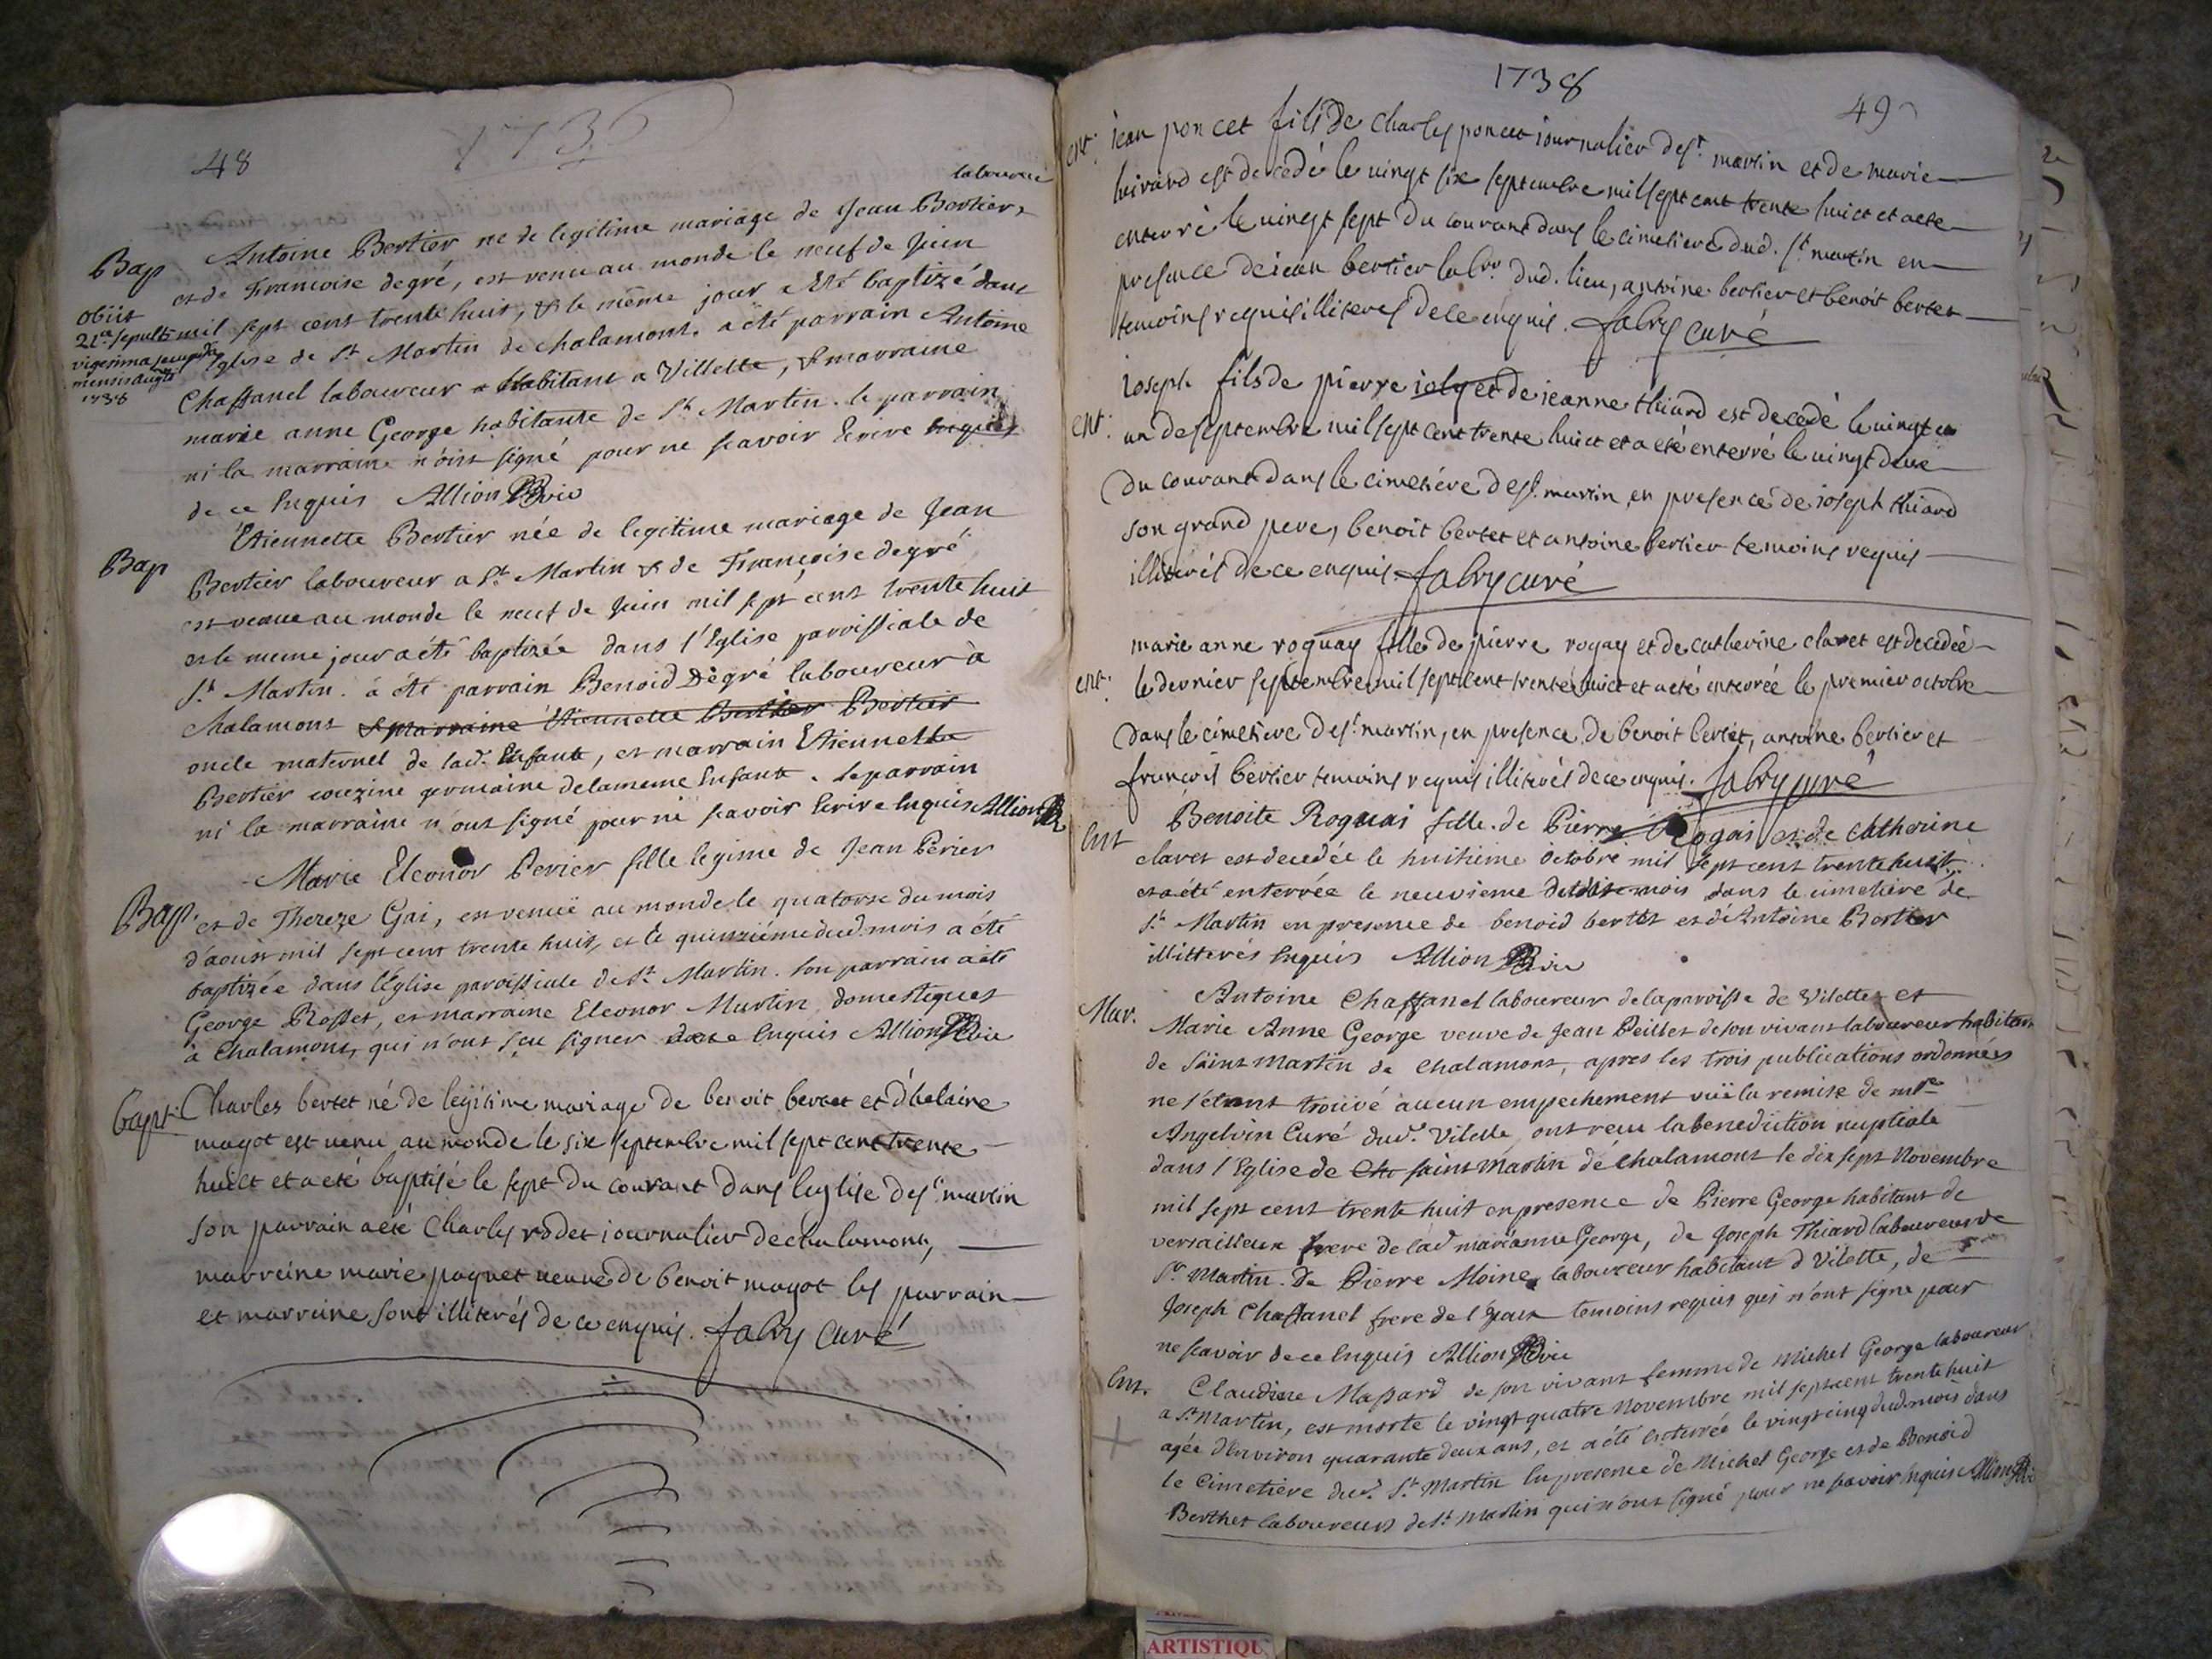 48
1738
laboureur
Bap
Antoine Bertier né de legitime mariage de Jean Bertier,
et de Francoise degré, est venu au monde le neuf de Juin
mil sept cens trente huit, & le même jour a été baptizé dans
obiit
21a sepulti
vigesima secunda
mensis augti
1738
l'Eglise de St Martin de chalamont. a été parrain Antoine
Chassanel laboureur habitant a Villette, & marraine
marie anne George habitante de St Martin. le parrain
ni la marraine n'ont signé pour ne scavoir Ecrire
de ce Inquis Allion Vic
Bap
Etiennette Bertier née de legitime mariage de Jean
Bertier laboureur a St Martin & de Françoise degré
est venue au monde le neuf de Juin mil sept cens trente huit
et le meme jour a été baptizée dans l'Eglise paroissiale de
St Martin. a été parrain Benoid Degré laboureur à
Chalamont & marraine Etiennette Bertier Bertier
oncle maternel de lad. Enfante, et marrain Etiennette
Bertier couzine germaine de la meme Enfante. le parrain
ni la marraine n'ont signé pour ne scavoir Ecrire Inquis Allion
Bap.
Marie Eleonor Perier fille legime de Jean Perier
et de Thereze Gai, est venuë au monde le quatorze du mois
d'aoust mil sept cent trente huit, et le quinziéme dud. mois a été
baptizée dans l'Eglise paroissiale de St Martin. son parrain a été
George Rosset, et marraine Eleonor Martin domestiques
a Chalamont, qui n'ont scu signer de ce Inquis Allion Vic
bapt.
Charles bertet né de legitime mariage de benoit bertet et d'helaine
magot est venu au monde le six septembre mil sept cent trente
huict et a eté baptisé le sept du courant dans leglise de st martin
son parrain a eté Charles rodet iournalier de chalamont,
marreine marie paquet veuve de benoit magot les parrain
et marreine sont illiterés de ce enquis. fabry Curé
1738
49
ent.
iean poncet fils de Charles poncet iournalier de st martin et de marie
huirard est decedé le vingt six septembre mil sept cent trente huict et a eté
enterré le vingt sept du courant dans le cimetiere dud. st martin en
presence de iean bertier labr dud. lieu, antoine bertier et benoit bertet
temoins requis illiterés de ce enquis. fabry curé
ent.
ioseph fils de pierre ioly et de ieanne thiard est decedé le vingt et
un de septembre mil sept cent trente huict et a eté enterré le vingt deux
du courant dans le cimetiére de st. martin en presence de ioseph thiard
son grand pere, benoit bertet et antoine bertier temoins requis
illiterés de ce enquis. fabry curé
ent.
marie anne roquay fille de pierre rogay et de catherine claret est decedeé
le dernier septembre mil sept cent trente huict et a eté enterrée le premier octobre
dans le cimetiere de st martin, en presence de benoit bertet, antoine bertier et
francois bertier temoins requis illiterés de ce enquis. fabry curé
Ent
Benoite Roquai fille de Pierre Rogai et de Catherine
claret est decedée le huitieme octobre mil sept cent trente huit,
et a été enterrée le neuvieme dudit mois dans le cimetiere de
St Martin en presence de benoid bertet et d'Antoine Bertier
illitterés Inquis Allion Vic
Mar.
Antoine Chassanel laboureur de la paroisse de Vilette et
Marie Anne George veuve de Jean Peillet de son vivant laboureur habitan
de Saint Martin de Chalamont, apres les trois publications ordonnées
ne s'étant trouvé aucun empechement vuë la remise de mre
Angelvin Curé dud. Vilette ont recu la benediction nuptiale
dans l'Eglise de Cha saint Martin de Chalamont le dix sept Novembre
mil sept cent trente huit en presence de Pierre George habitant de
versailleux frere de lad marianne George, de Joseph Thiard laboureur de
St Martin. de Pierre Moine, laboureur habitant d Vilette, de
Joseph Chassanel frere de l'Epoux temoins requis qui n'ont signé pour
ne scavoir de ce Inquis Allion Vic
Ent.
Claudine Massard de son vivant femme de Michel George laboureur
a St Martin, est morte le vingt quatre Novembre mil sept cent trente huit
agée d'Environ quarante deux ans, et a été enterrée le vingt cinq dud. mois dans
le Cimetiere dud. St Martin En presence de Michel George et de Benoid
Berthet laboureurs de St Martin qui n'ont signé pour ne scavoir Inquis Allion Vic
ARTISTIQU